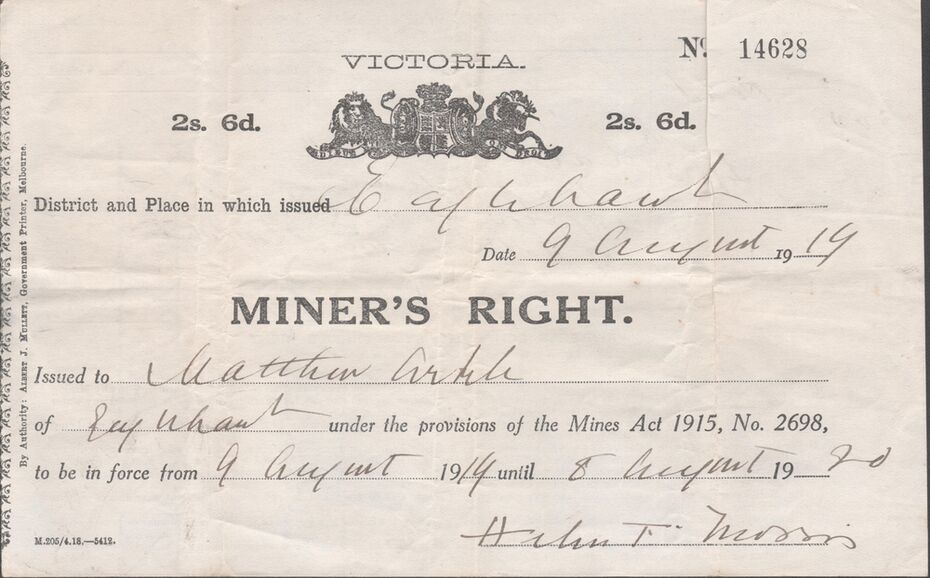 Nº. 14628
VICTORIA.
2s. 6d. 2s. 6d.
DIEU ET MON DROIT
District and Place in which issued
Date 9 August 1919
MINER'S RIGHT.
Issued to Matthew
of under the provisions of the Mines Act 1915, No. 2698,
to be in force from 9 August 1919 until 8 August 1920
Morris
M.205/4.18.—5412.
By Authority: ALBERT J. MULLETT, Government Printer, Melbourne.